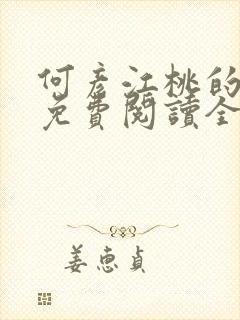 何彦江桃的
免費閱讀全
姜恵貞